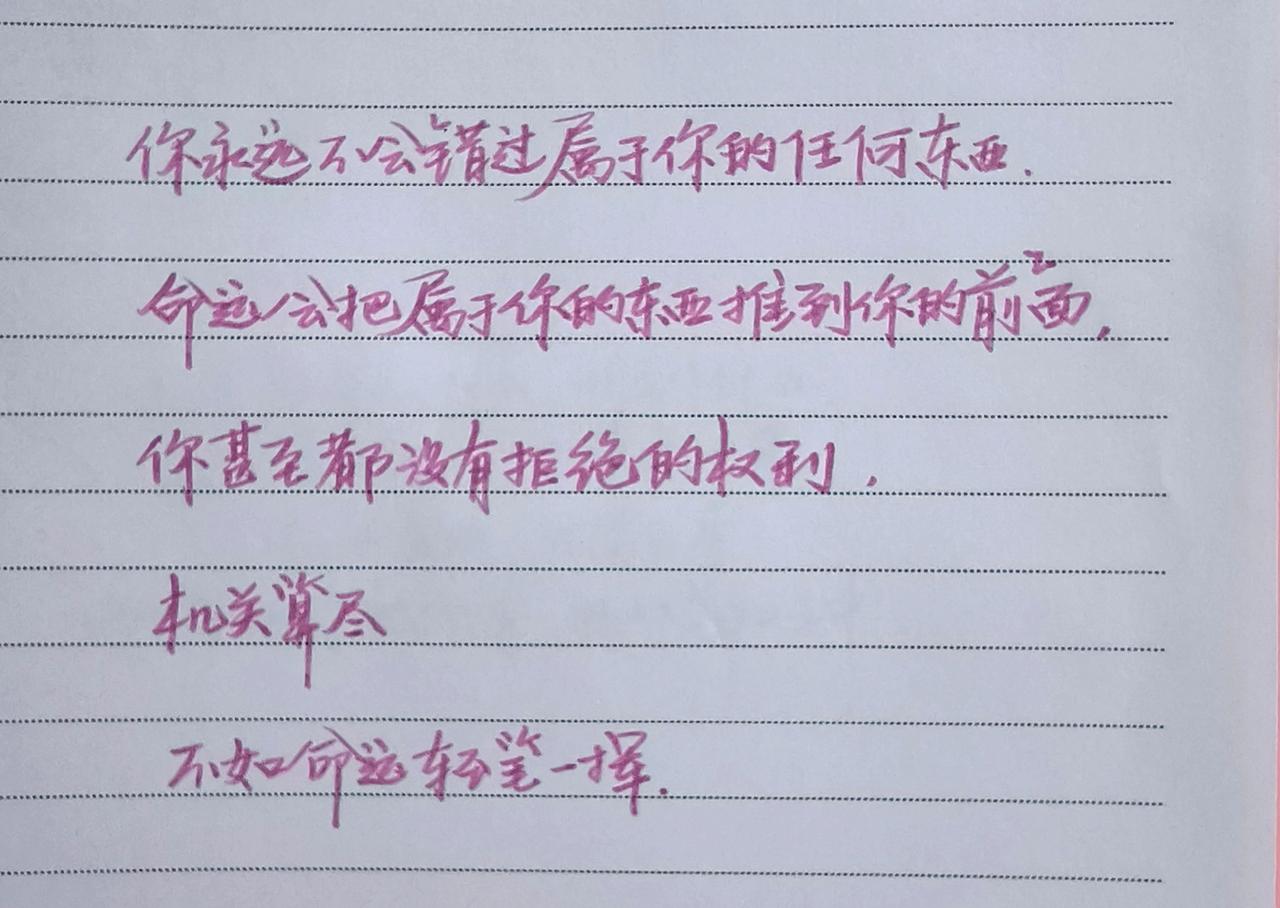 你永远不会错过属于你的任何东西.
命运会把属于你的东西推到你的前面,
你甚至都没有拒绝的权利.
机关算尽
不如命运轻笔一挥.